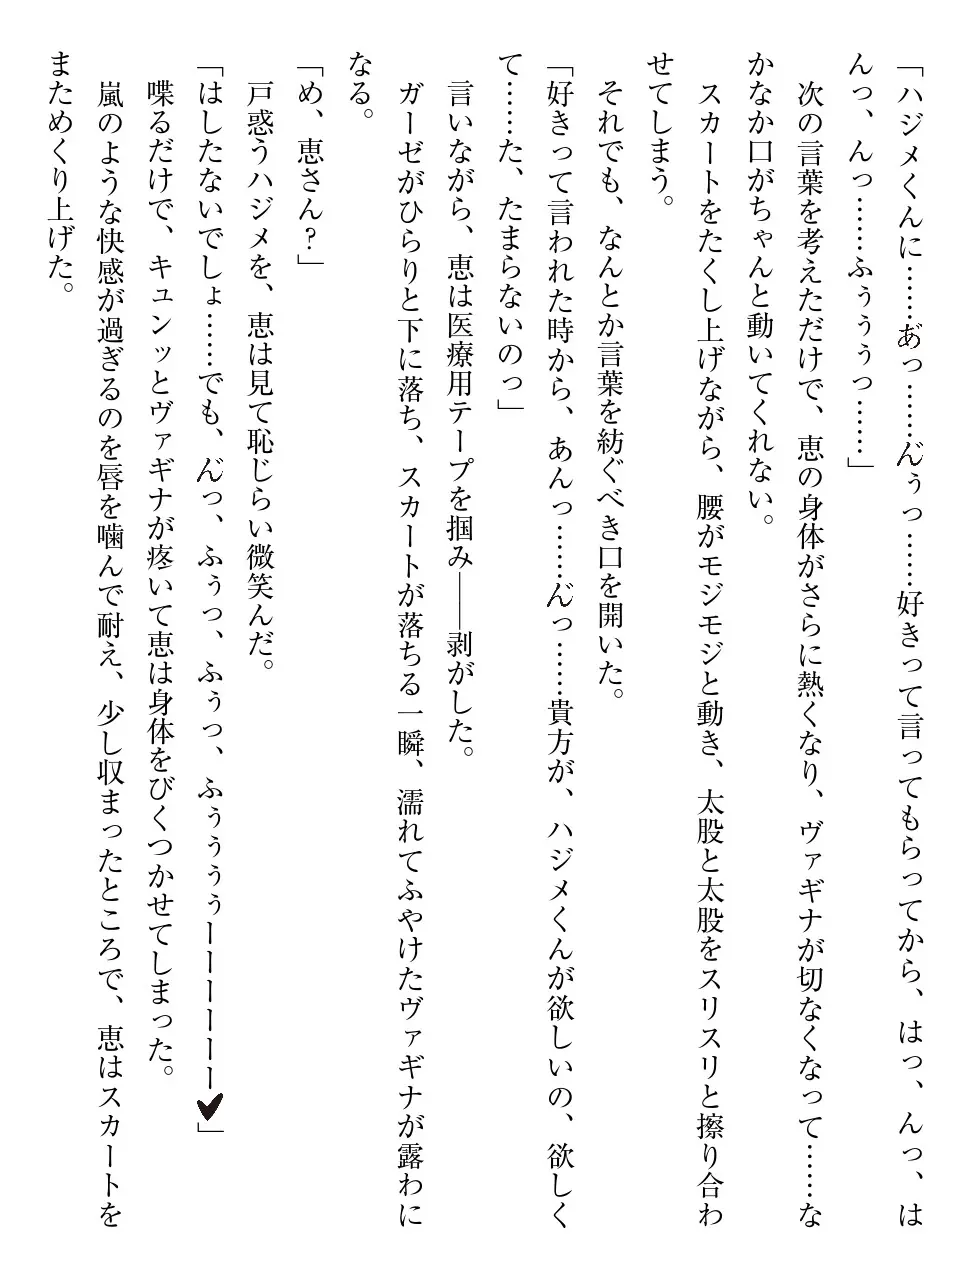 「ハジメくんに……あ゛っ……ん゛ぅっ……好きって言ってもらってから、はっ、んっ、は
んっ、んっ……ふぅぅっ……」
　次の言葉を考えただけで、恵の身体がさらに熱くなり、ヴァギナが切なくなって……な
かなか口がちゃんと動いてくれない。
　スカートをたくし上げながら、腰がモジモジと動き、太股と太股をスリスリと擦り合わ
せてしまう。
　それでも、なんとか言葉を紡ぐべき口を開いた。
「好きって言われた時から、あんっ……ん゛っ……貴方が、ハジメくんが欲しいの、欲しく
て……た、たまらないのっ」
　言いながら、恵は医療用テープを掴み――剥がした。
　ガーゼがひらりと下に落ち、スカートが落ちる一瞬、濡れてふやけたヴァギナが露わに
なる。
「め、恵さん？」
　戸惑うハジメを、恵は見て恥じらい微笑んだ。
「はしたないでしょ……でも、ん゛っ、ふぅっ、ふぅっ、ふぅぅぅぅーーーーーー♥」
　喋るだけで、キュンッとヴァギナが疼いて恵は身体をびくつかせてしまった。
　嵐のような快感が過ぎるのを唇を噛んで耐え、少し収まったところで、恵はスカートを
まためくり上げた。